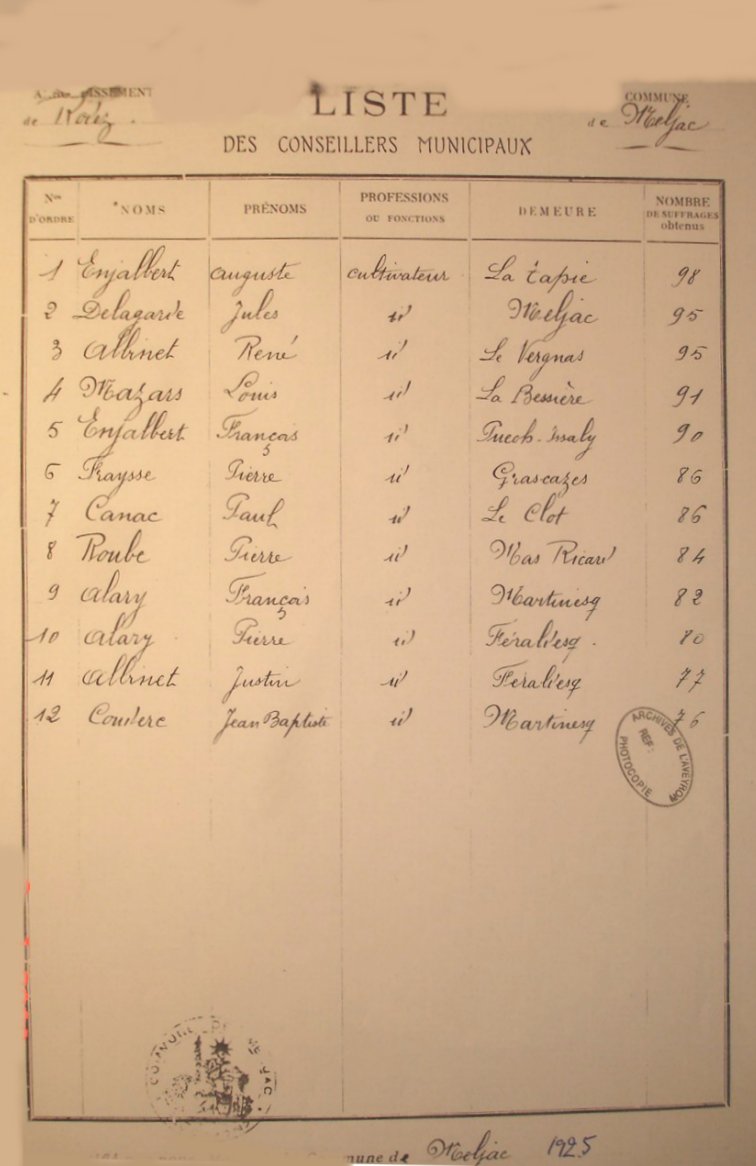 ARRONDISSEMENT
de Rodez.
LISTE
DES CONSEILLERS MUNICIPAUX
COMMUNE
de Meljac
Nos D'ORDRE NOMS PRÉNOMS PROFESSIONS OU FONCTIONS DEMEURE NOMBRE DE SUFFRAGES obtenus
1 Enjalbert auguste cultivateur La tapie 98
2 Delagarde Jules id Meljac 95
3 Albinet René id Le Vergnas 95
4 Mazars Louis id La Bessière 91
5 Enjalbert François id Puech-Issaly 90
6 Fraysse Pierre id Grascazes 86
7 Canac Paul id Le Clot 86
8 Roube Pierre id Mas Ricard 84
9 alary François id Martinesq 82
10 alary Pierre id Féraldesq. 80
11 Albinet Justin id Feraldesq 77
12 Couderc Jean Baptiste id Martinesq 76
ARCHIVES DE L'AVEYRON
REF:
PHOTOCOPIE
COMMUNE DE MELJAC
mune de Meljac 1925